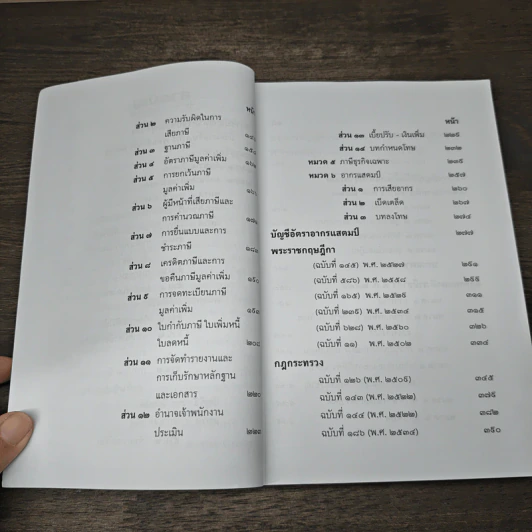 หน้า
ส่วน ๒ ความรับผิดในการ
เสียภาษี
ส่วน ๓ ฐานภาษี
ส่วน ๔ อัตราภาษีมูลค่าเพิ่ม
ส่วน ๕ การยกเว้นภาษี
มูลค่าเพิ่ม
ส่วน ๖ ผู้มีหน้าที่เสียภาษีและ
การคำนวณภาษี
ส่วน ๗ การยื่นแบบและการ
ชำระภาษี
ส่วน ๘ เครดิตภาษีและการ
ขอคืนภาษีมูลค่าเพิ่ม
ส่วน ๙ การจดทะเบียนภาษี
มูลค่าเพิ่ม
ส่วน ๑๐ ใบกำกับภาษี ใบเพิ่มหนี้
ใบลดหนี้ ๒๐๘
ส่วน ๑๑ การจัดทำรายงานและ
การเก็บรักษาหลักฐาน
และเอกสาร ๒๒๐
ส่วน ๑๒ อำนาจเจ้าพนักงาน
ประเมิน
หน้า
ส่วน ๑๓ เบี้ยปรับ - เงินเพิ่ม ๒๒๕
ส่วน ๑๔ บทกำหนดโทษ ๒๓๒
หมวด ๕ ภาษีธุรกิจเฉพาะ ๒๓๕
หมวด ๖ อากรแสตมป์ ๒๕๗
ส่วน ๑ การเสียอากร ๒๖๐
ส่วน ๒ เบ็ดเตล็ด ๒๖๗
ส่วน ๓ บทลงโทษ ๒๗๔
บัญชีอัตราอากรแสตมป์ ๒๗๗
พระราชกฤษฎีกา
(ฉบับที่ ๑๔๕) พ.ศ. ๒๕๒๗ ๒๙๑
(ฉบับที่ ๕๘๖) พ.ศ. ๒๕๕๘ ๒๙๕
(ฉบับที่ ๑๖๕) พ.ศ. ๒๕๒๙ ๓๑๑
(ฉบับที่ ๒๓๙) พ.ศ. ๒๕๓๔ ๓๑๕
(ฉบับที่ ๖๒๘) พ.ศ. ๒๕๖๐ ๓๒๖
(ฉบับที่ ๑๑) พ.ศ. ๒๕๐๒ ๓๓๔
กฎกระทรวง
ฉบับที่ ๑๒๖ (พ.ศ. ๒๕๐๙) ๓๔๕
ฉบับที่ ๑๔๓ (พ.ศ. ๒๕๒๒) ๓๗๙
ฉบับที่ ๑๔๔ (พ.ศ. ๒๕๒๒) ๓๘๒
ฉบับที่ ๑๘๖ (พ.ศ. ๒๕๓๔) ๓๙๐